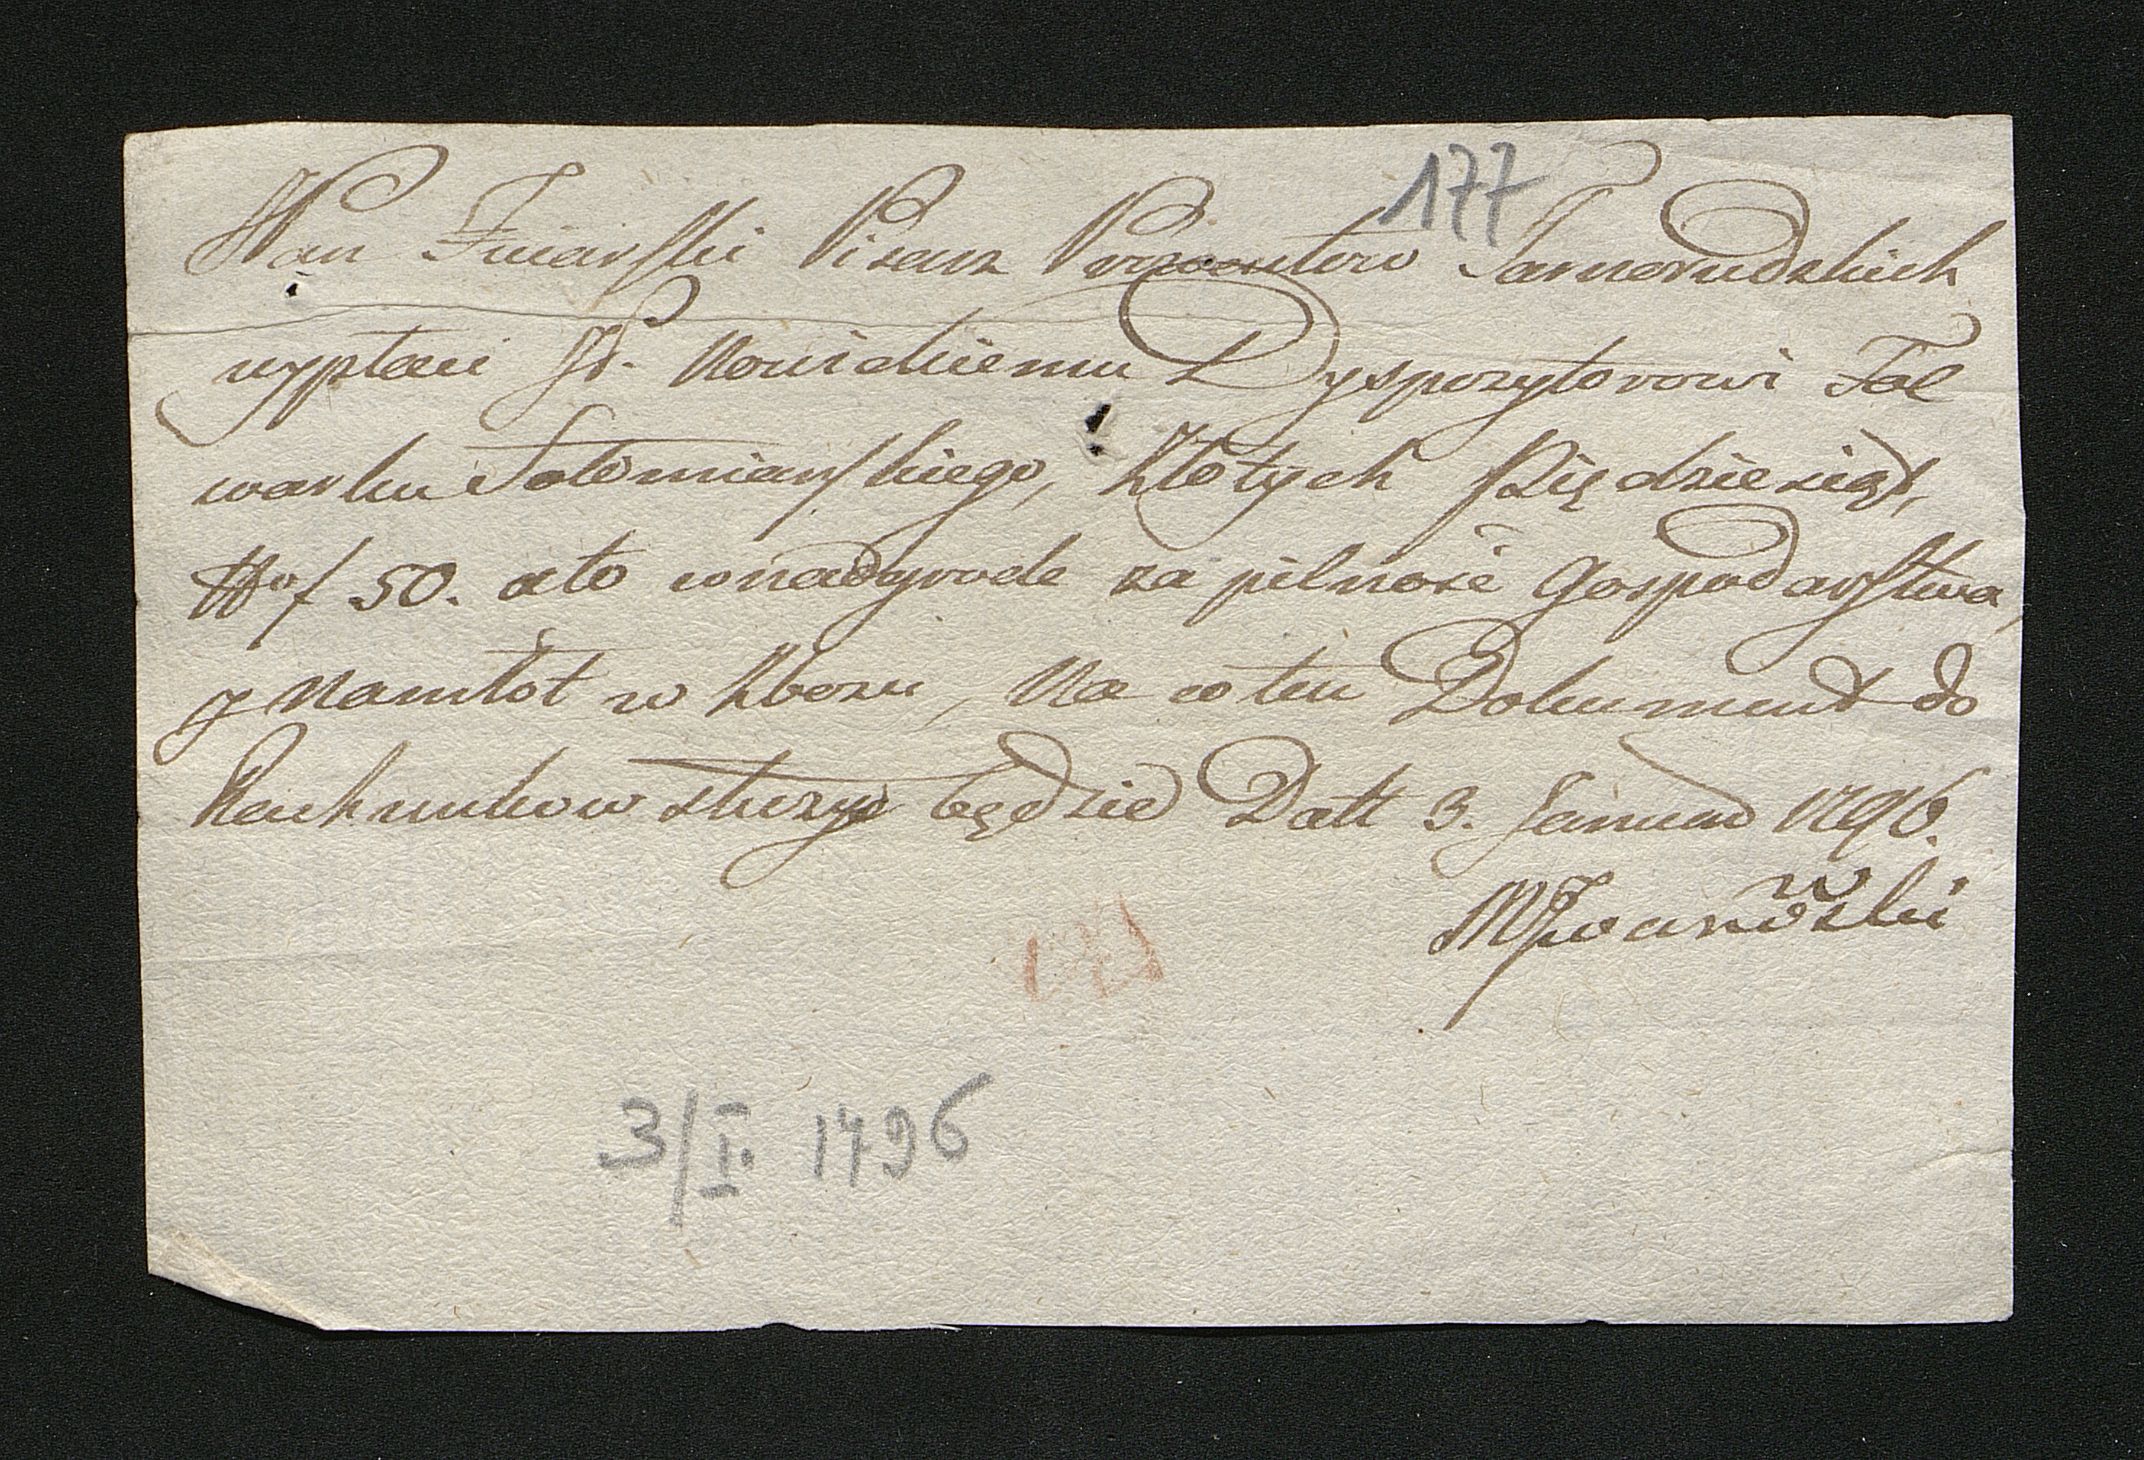 177
JPan Fuiarski Pisarz Prowentow Tarnorudzkich
wypłaci JP. Nowickiemu Dyspozytorowi Fol
warku Sołomiarskiego, Złotych Pięcdziesiąt,
N° f 50. ato wnadgrode za pilność Gospodarstwa,
y Namłot w Zbożu, Na co ten Dokument do
Rachunkow służyć będzie Datt 3. Januar 1796.
MJwanowski
3/I. 1796